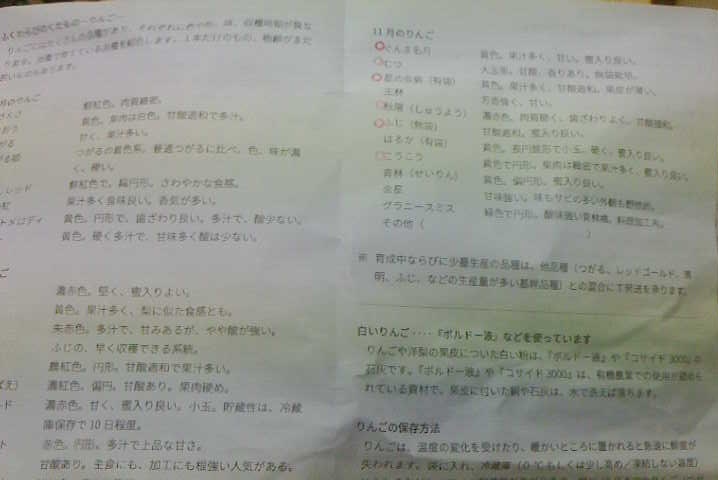 ふくだらびのくだもの―りんご―
りんごにはたくさんの品種があり、それぞれに色や形、味、収穫時期が異な
ります。当園で育てている品種を紹介します。1本だけのもの、樹齢がまだ
若いものもあります。
月のりんご
鮮紅色。肉質緻密。
黄色。果肉は白色。甘酸適和で多汁。
甘く、果汁多い。
つがるの着色系。普通つがるに比べ、色、味が濃
く、硬い。
レッド 鮮紅色で、長円形。さわやかな食感。
紅 果汁多く食味良い。香気が多い。
トメロディ 黄色。円形で、歯ざわり良い。多汁で、酸少ない。
黄色。硬く多汁で、甘味多く酸は少ない。
ご
濃赤色。堅く、蜜入りよい。
黄色。果汁多く、梨に似た食感とも。
朱赤色。多汁で、甘みあるが、やや酸が強い。
ふじの、早く収穫できる系統。
農紅色。円形。甘酸適和で果汁多い。
ばえ) 濃紅色、偏円。甘酸あり。果肉硬め。
ード 濃赤色。甘く、蜜入り良い。小玉。貯蔵性は、冷蔵
庫保存で10日程度。
ト 赤色。円形。多汁で上品な甘さ。
甘酸あり。主食にも、加工にも根強い人気がある。
11月のりんご
ぐんま名月 黄色。果汁多く、甘い。蜜入り良い。
むつ 大玉系。甘酸、香りあり。無袋栽培。
星の金貨(有袋) 黄色。果汁多く、甘酸適和。果皮が薄い。
王林 芳香強く、甘い。
秋陽(しゅうよう) 濃赤色。肉質硬く、歯ざわりよく、甘酸適和。
ふじ(無袋) 甘酸適和。蜜入り良い。
はるか(有袋) 黄色。長円錐形で小玉。硬く、蜜入り良い。
こうこう 黄色で円形。果肉は緻密で果汁多く、蜜入り良い。
青林(せいりん) 黄色。偏円形。蜜入り良い。
金星 甘味強い。味もサビの多い外観も野性的。
グラニースミス 緑色で円形。酸味強い青林檎。料理加工用。
その他( )
※ 育成中ならびに少量生産の品種は、他品種(つがる、レッドゴールド、陽
明、ふじ、などの生産量が多い基幹品種)との混合にて発送を承ります。
白いりんご‥‥『ボルドー液』などを使っています
りんごや洋梨の果皮についた白い粉は、『ボルドー液』や『コサイド3000』の
石灰です。『ボルドー液』や『コサイド3000』は、有機農業での使用が認めら
れている資材で、果皮に付いた銅や石灰は、水で洗えば落ちます。
りんごの保存方法
りんごは、温度の変化を受けたり、暖かいところに置かれると急速に鮮度が
失われます。袋に入れ、冷蔵庫(0℃もしくは少し高め/凍結しない温度)